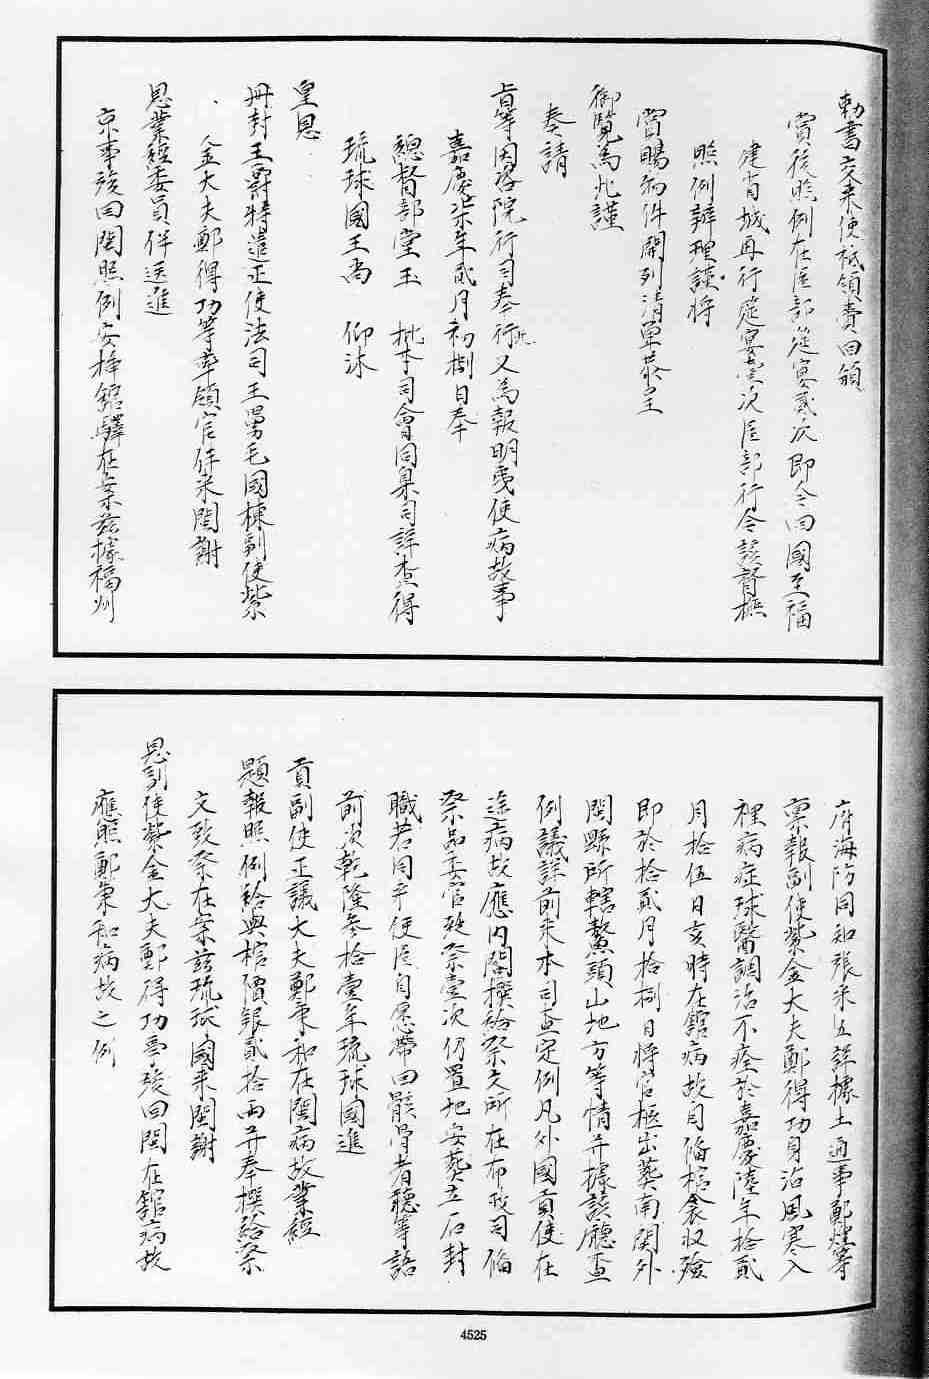 勅書交来使祗領賫回頒
賞後照例在臣部筵宴貳次即令回國至福
建省城再行筵宴壹次臣部行令該督撫
照例辦理謹将
賞賜物件開列清單恭呈
御覧為此謹
奏請
旨等因咨院行司奉行此又為報明夷使病故事
嘉慶柒年貳月初捌日奉
總督部堂玉 批本司會同臬司詳查得
琉球國王尚 仰沐
皇恩
冊封王爵特遣正使法司王舅毛國棟副使紫
金大夫鄭得功等率領官伴来閩謝
恩業經委員伴送進
京事竣回閩照例安挿舘驛在案茲據福州
府海防同知張采五詳據土通事鄭煌等
禀報副使紫金大夫鄭得功身沾風寒入
裡病症球醫調治不痊於嘉慶陸年拾貳
月拾伍日亥時在舘病故自俻棺衾収殮
即於拾貳月拾捌日將官柩出葬南関外
閩縣所轄鰲頭山地方等情并據該廳查
例議詳前来本司查定例凡外國貢使在
途病故應内閣撰給祭文所在布政司俻
祭品委官致祭壹次仍置地安葬立石封
職若同辛使臣自愿帶回骸骨者聴等語
前於乾隆叁拾壹年琉球國進
貢副使正議大夫鄭秉和在閩病故業經
題報照例給與棺價銀貳拾両并奉撰給祭
文致祭在案茲琉球國来閩謝
恩副使紫金大夫鄭得功事竣回閩在舘病故
應照鄭秉和病故之例
4525